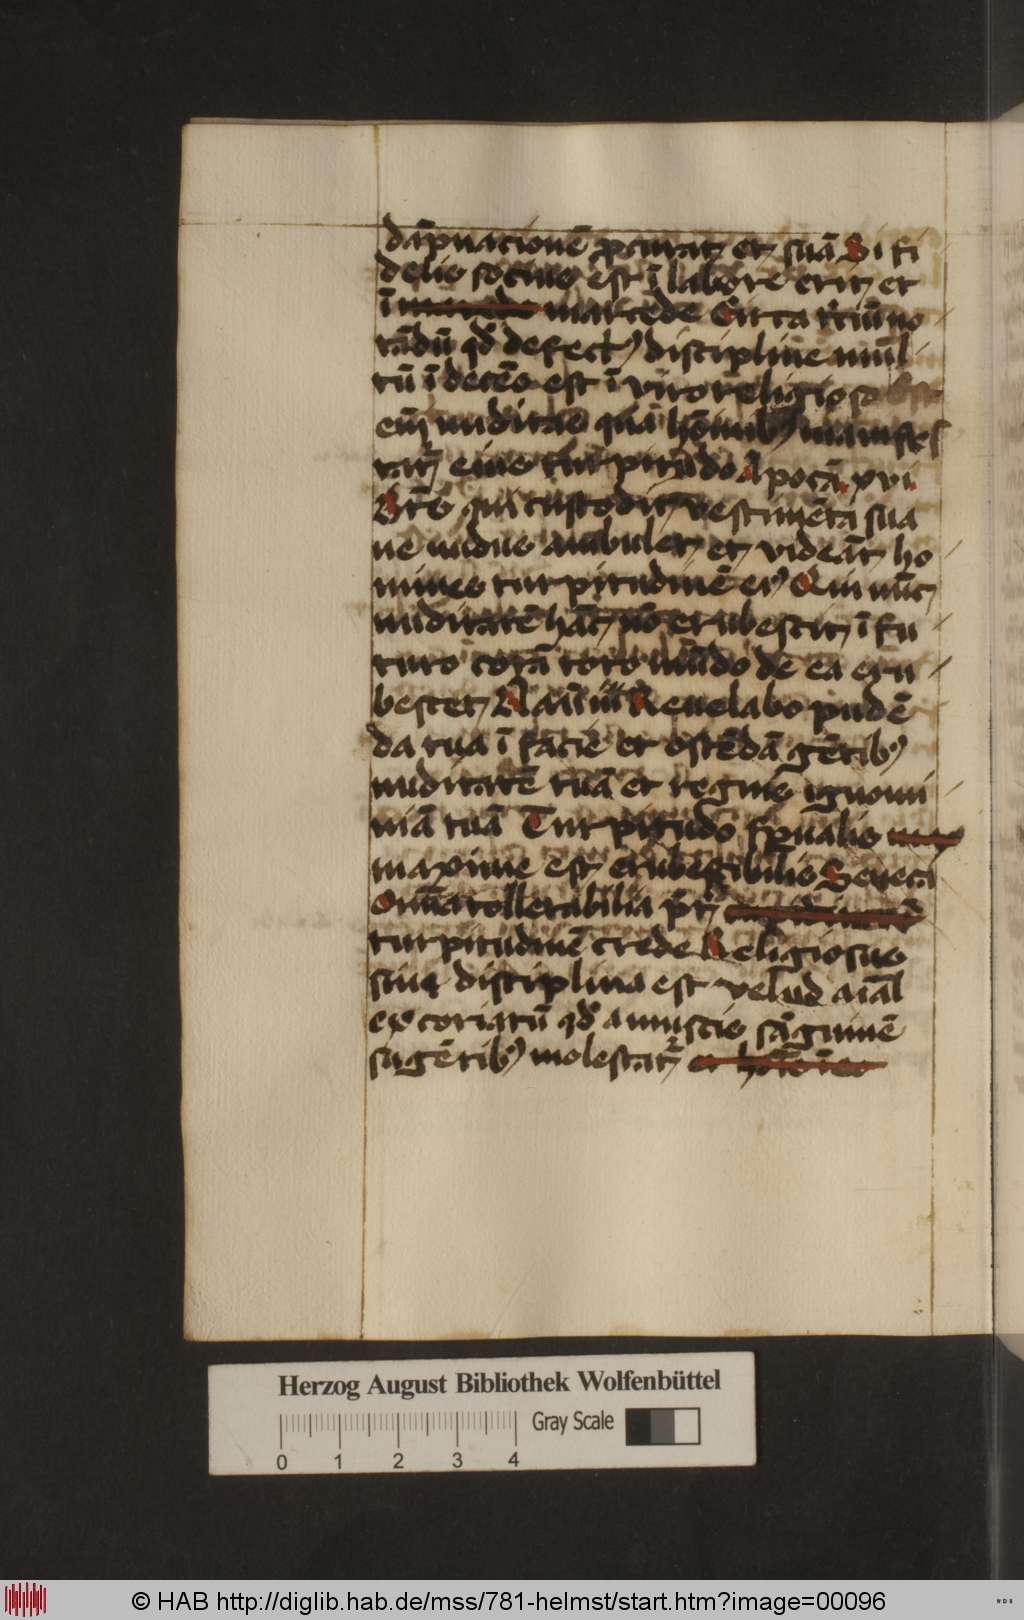 dāpnacionē procurat et suā Si fi
delis socius est ī labore erit et
ī mercede Circa t'ciū no
tādū qd defectꝰ discipline mul
tū īdecēs est ī viro religioso Est
eī nuditas qua hōinibꝰ manifes
tat' eius turpitudo Apocā xvi
Btūs qui custodit vestimēta sua
ne nudus ambulet et videāt ho
mines turpitudinē eiꝰ Qui nūc
nuditatē hāc nō erubescit ī fu
turo corā toto mūdo de ea eru
bescet Naū iii Reuelabo pudē
da tua ī facie et ostēdā gētibꝰ
nuditatē tuā et regnis ignomi
niā tuā Turpitudo spūalis
maxime est erubescibilis Seneca
Omīa tollerabilia pret'
turpitudinē crede Religiosus
sine disciplina est velud aīal
excoriatū qd a muscis sāguinē
sugētibꝰ molestat'
Herzog August Bibliothek Wolfenbüttel
Gray Scale
0 1 2 3 4
© HAB http://diglib.hab.de/mss/781-helmst/start.htm?image=00096